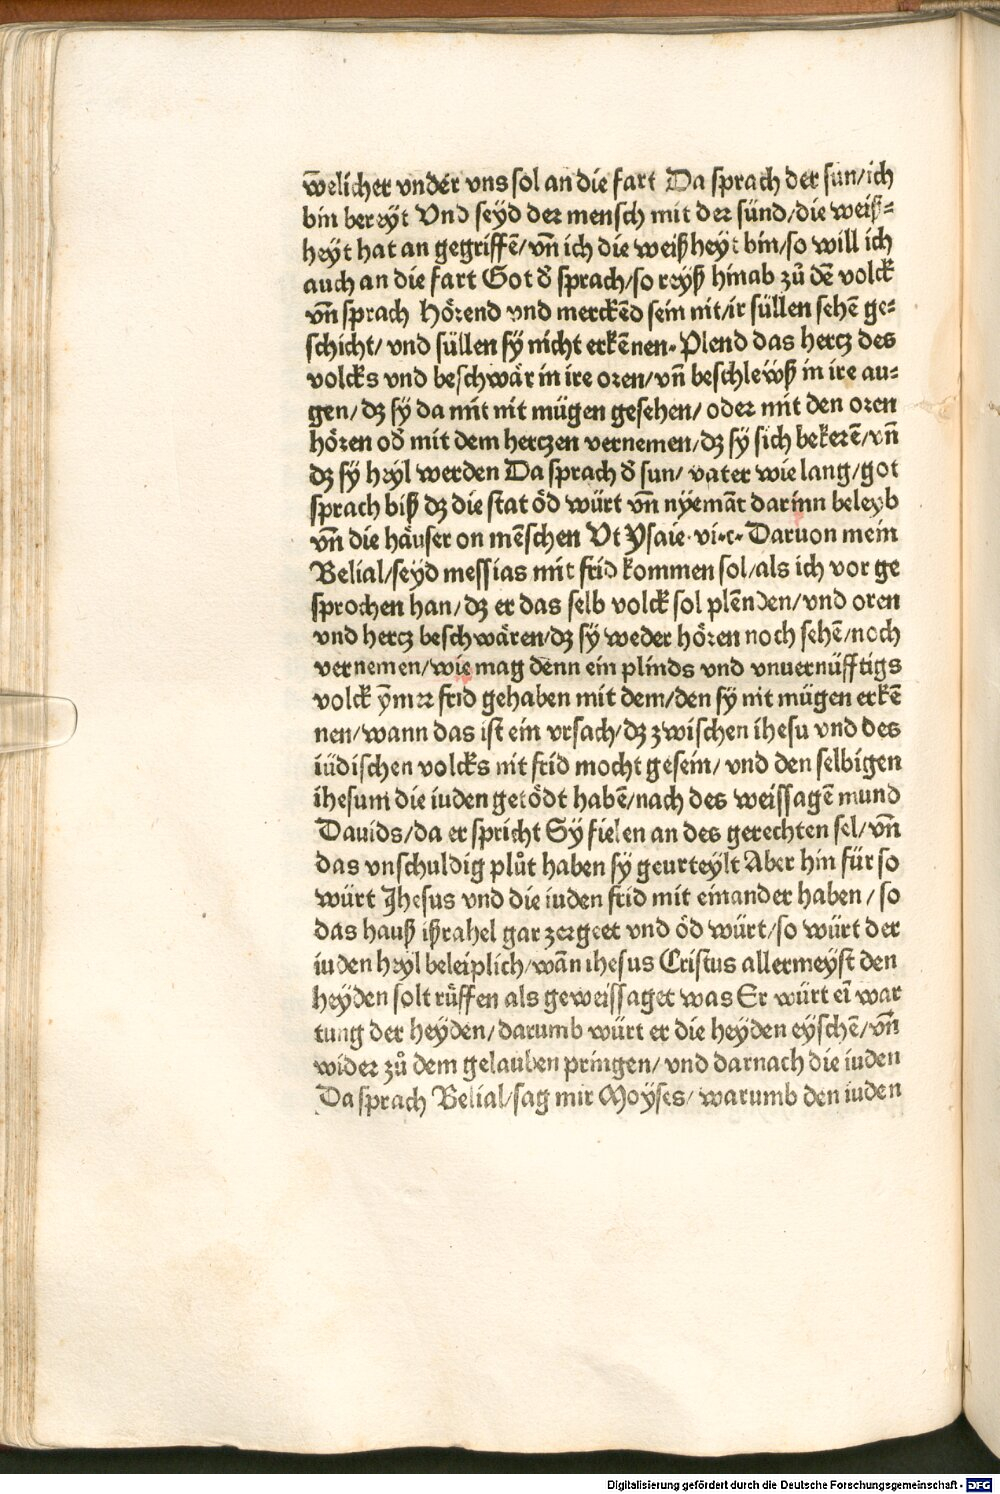 w̄elicher vnder vns sol an die fart Da sprach der sun/ich
bin bereyt Vnd seyd der mensch mit der sünd/die weiß⸗
heyt hat an gegriffē/vn̄ ich die weißheyt bin/so will ich
auch an die fart Got d̕ sprach/so reyß hinab zů dē volck
vn̄ sprach Hörend vnd merckēd sein nit/ir süllen sehē ge⸗
schicht/ vnd süllen sy nicht erkēnen. Plend das hertz des
volcks vnd beschwär in ire oren/vn̄ beschlewß in ire au⸗
gen/ dz sy da mit nit mügen gesehen/ oder mit den oren
hören od̕ mit dem hertzen vernemen/dz sy sich bekerē/vn̄
dz sy heyl werden Da sprach d̕ sun/ vater wie lang/got
sprach biß dz die stat öd würt vn̄ nyemāt darinn beleyb
vn̄ die häuser on mēschen Vt Ysaie·vi·c· Daruon mein
Belial/seyd messias mit frid kommen sol/als ich vor ge
sprochen han/dz er das selb volck sol plēnden/vnd oren
vnd hertz beschwären/dz sy weder hören noch sehē/noch
vernemen/wie mag denn ein plinds vnd vnuernüfftigs
volck ym̄er frid gehaben mit dem/den sy nit mügen erkē
nen/wann das ist ein vrsach/dz zwischen ihesu vnd des
iüdischen volcks nit frid mocht gesein/ vnd den selbigen
ihesum die iuden getödt habē/nach des weissagē mund
Dauids/da er spricht Sy fielen an des gerechten sel/vn̄
das vnschuldig plůt haben sy geurteylt Aber hin für so
würt Jhesus vnd die iuden frid mit einander haben/ so
das hauß ißrahel gar zergeet vnd öd würt/so würt der
iuden heyl beleiplich/wān ihesus Cristus allermeyst den
heyden solt rüffen als geweissaget was Er würt eī war
tung der heyden/darumb würt er die heyden eyschē/vn̄
wider zů dem gelauben pringen/ vnd darnach die iuden
Da sprach Belial/sag mir Moyses/ warumb den iuden
Digitalisierung gefördert durch die Deutsche Forschungsgemeinschaft - DFG